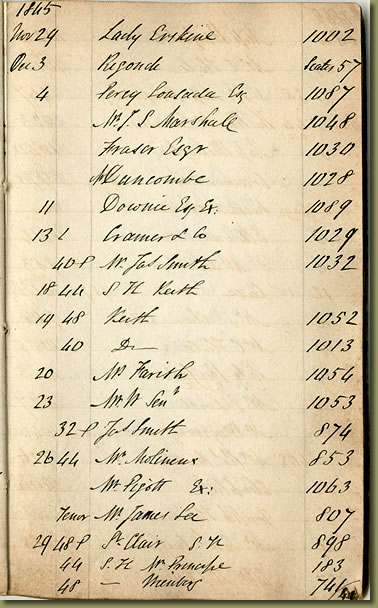 1845
Nov 29 Lady Erskine 1002
Dec 3 Rigondi 57
4 Percy Lousada Eq 1087
Mr J. S Marshall 1048
Fraser Esqr 1030
Mr Duncombe 1028
11 Downie Eq Ex: 1089
13 L Cramer & Co 1029
40 P Mr Jas Smith 1032
18 44 S H Keith
19 48 Keith 1052
40 Do 1013
20 Mr Farish 1054
23 Mr W 1053
32 P Jas Smith 874
26 44 Mr Molineux 853
Mr Pigott Ex: 1063
Tenor Mr James Lee 807
29 48 P St. Clair S. H 898
44 S. H Mr Principe 183
48 — 741